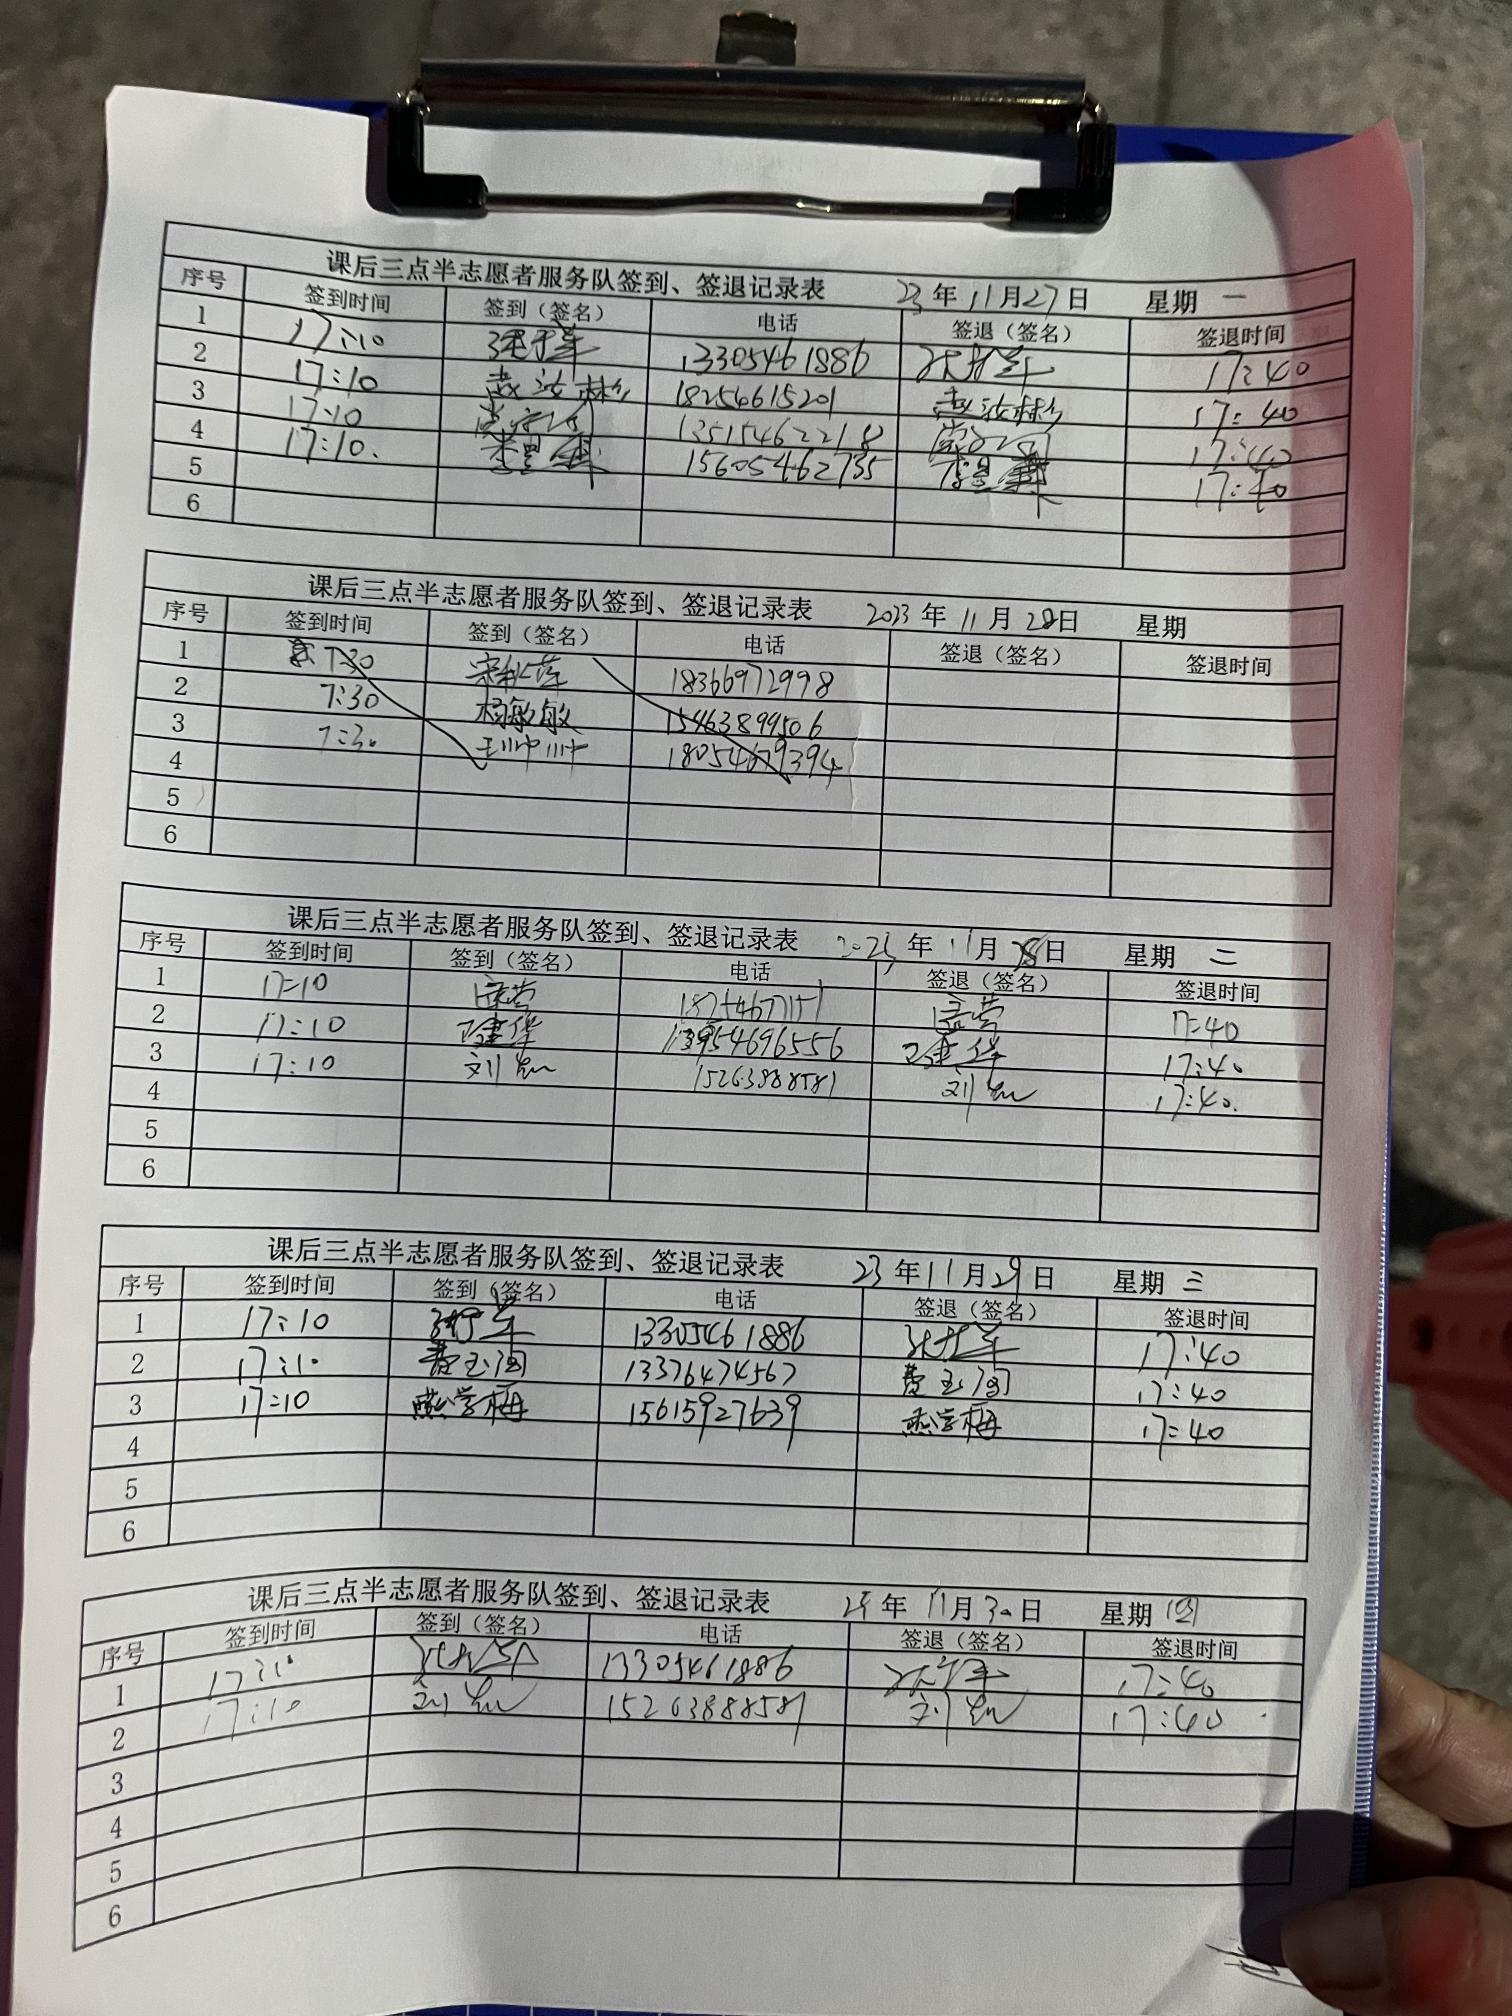 课后三点半志愿者服务队签到、签退记录表 23年11月27日 星期 一
序号 签到时间 签到（签名） 电话 签退（签名） 签退时间
1 17:10 13305461886 17:40
2 17:10 18254615201 17:40
3 17:10 13515462218 17:40
4 17:10. 15605462735 17:40
5
6
课后三点半志愿者服务队签到、签退记录表 2023年11月28日 星期
序号 签到时间 签到（签名） 电话 签退（签名） 签退时间
1 7:30 18366972998
2 7:30 杨敏敏 15463899506
3 7:30 18054679394
4
5
6
课后三点半志愿者服务队签到、签退记录表 年11月28日 星期 二
序号 签到时间 签到（签名） 电话 签退（签名） 签退时间
1 17:10 17:40
2 17:10 建华 13954696556 建华 17:40
3 17:10 刘 15263888581 刘 17:40.
4
5
6
课后三点半志愿者服务队签到、签退记录表 23年11月29日 星期 三
序号 签到时间 签到（签名） 电话 签退（签名） 签退时间
1 17:10 13305461886 17:40
2 17:10 费玉润 13376474567 费玉润 17:40
3 17:10 燕学梅 15615927639 燕学梅 17:40
4
5
6
课后三点半志愿者服务队签到、签退记录表 年11月30日 星期 四
序号 签到时间 签到（签名） 电话 签退（签名） 签退时间
1 17:10 13305461886 17:40
2 17:10 刘 15263888581 刘 17:40
3
4
5
6